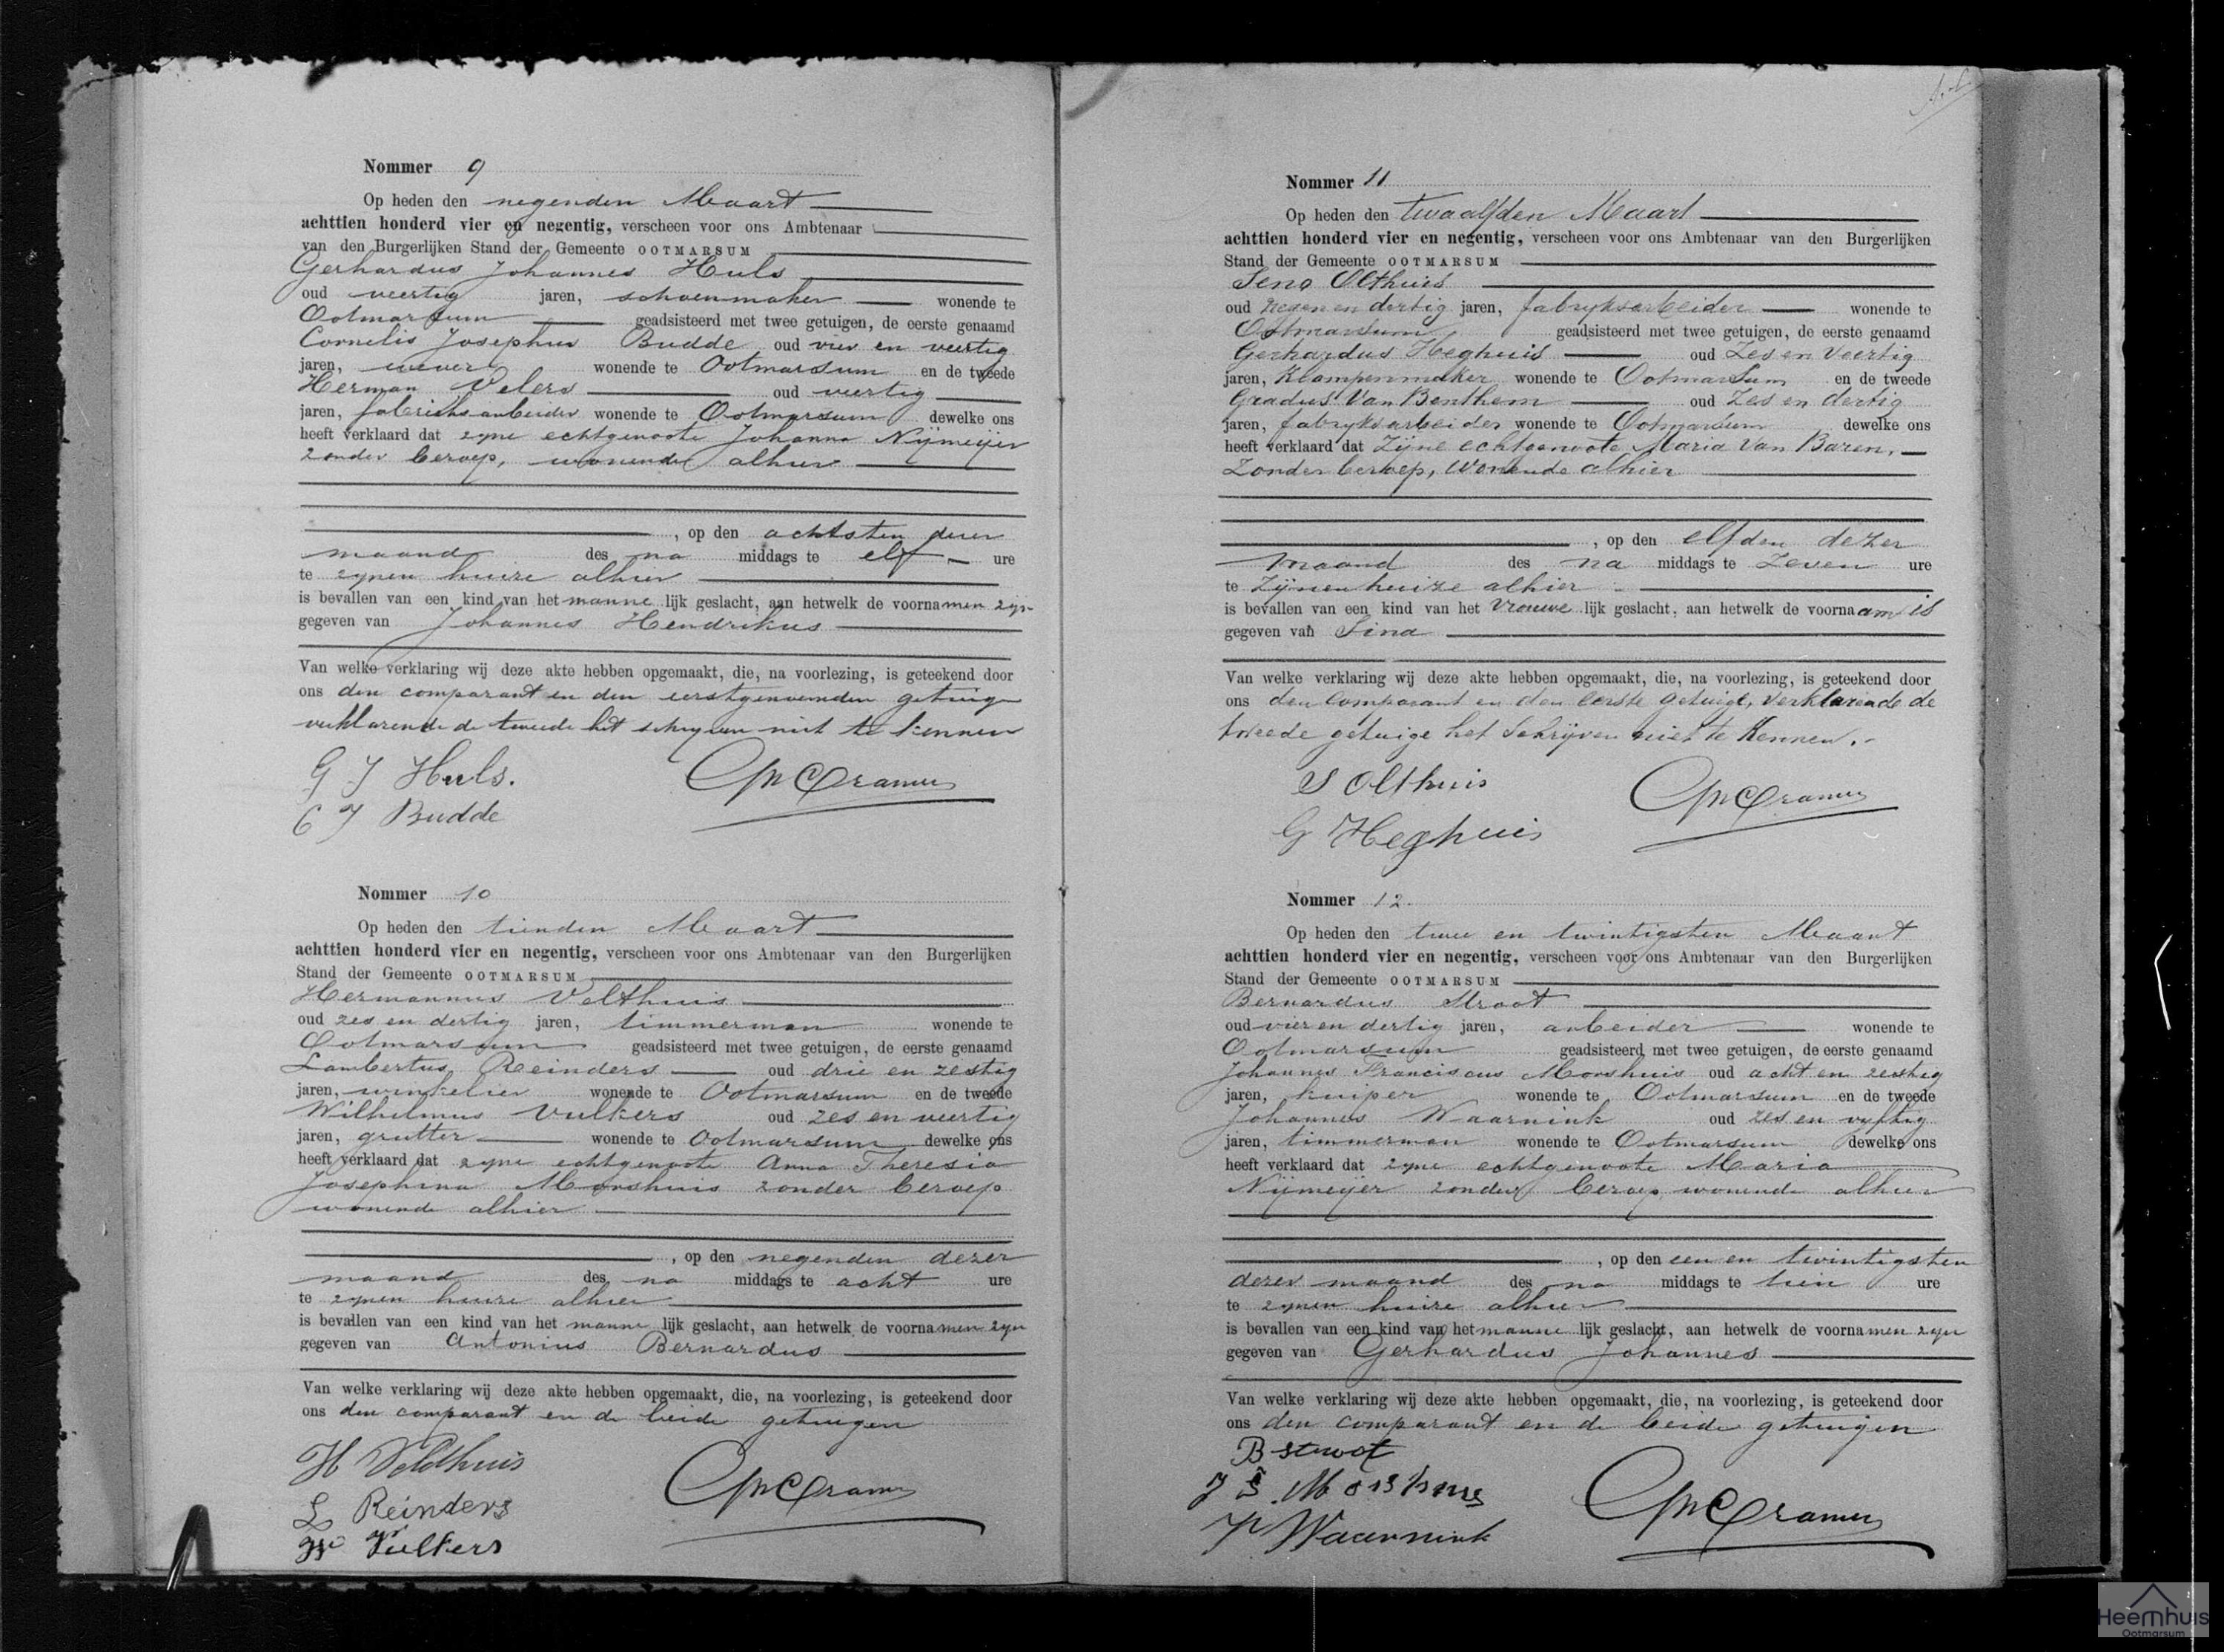 Nommer 9
Op heden den negenden Maart
achttien honderd vier en negentig, verscheen voor ons Ambtenaar
van den Burgerlijken Stand der Gemeente OOTMARSUM
Gerhardus Johannes Huls
oud veertig jaren, schoenmaker wonende te
Ootmarsum geadsisteerd met twee getuigen, de eerste genaamd
Cornelis Josephus Budde oud vier en veertig
jaren, wever wonende te Ootmarsum en de tweede
Herman Velers oud veertig
jaren, fabrieksarbeider wonende te Ootmarsum dewelke ons
heeft verklaard dat zyne echtgenoote Johanna Nijmeijer
zonder beroep, wonende alhier
, op den achtsten dezer
maand des na middags te elf ure
te zynen huize alhier
is bevallen van een kind van het manne lijk geslacht, aan hetwelk de voornamen zyn
gegeven van Johannes Hendrikus
Van welke verklaring wij deze akte hebben opgemaakt, die, na voorlezing, is geteekend door
ons den comparant en den eerstgenoemden getuige
verklarende de tweede het schryven niet te kennen
G J Huls.
C J Budde
Cramer
Nommer 10
Op heden den tienden Maart
achttien honderd vier en negentig, verscheen voor ons Ambtenaar van den Burgerlijken
Stand der Gemeente OOTMARSUM
Hermannus Velthuis
oud zes en dertig jaren, timmerman wonende te
Ootmarsum geadsisteerd met twee getuigen, de eerste genaamd
Lambertus Reinders oud drie en zestig
jaren, winkelier wonende te Ootmarsum en de tweede
Wilhelmus Vulkers oud zes en veertig
jaren, grutter wonende te Ootmarsum dewelke ons
heeft verklaard dat zyne echtgenoote Anna Theresia
Josephina Morshuis zonder beroep
wonende alhier
, op den negenden dezer
maand des na middags te acht ure
te zynen huize alhier
is bevallen van een kind van het manne lijk geslacht, aan hetwelk de voornamen zyn
gegeven van Antonius Bernardus
Van welke verklaring wij deze akte hebben opgemaakt, die, na voorlezing, is geteekend door
ons den comparant en de beide getuigen
H Veldhuis
L Reinders
W Vulkers
Cramer
Nommer 11
Op heden den twaalfden Maart
achttien honderd vier en negentig, verscheen voor ons Ambtenaar van den Burgerlijken
Stand der Gemeente OOTMARSUM
Seno Olthuis
oud negen en dertig jaren, fabryksarbeider wonende te
Ootmarsum geadsisteerd met twee getuigen, de eerste genaamd
Gerhardus Heghuis oud Zes en Veertig
jaren, Klompenmaker wonende te Ootmarsum en de tweede
Gradus Van Benthem oud Zes en dertig
jaren, fabryksarbeider wonende te Ootmarsum dewelke ons
heeft verklaard dat Zijne echtgenoote Maria Van Baren,
Zonder beroep, wonende alhier
, op den elfden dezer
maand des na middags te Zeven ure
te Zijnen huize alhier
is bevallen van een kind van het Vrouwe lijk geslacht, aan hetwelk de voornaam is
gegeven van Sina
Van welke verklaring wij deze akte hebben opgemaakt, die, na voorlezing, is geteekend door
ons den comparant en den eerste getuige, verklarende de
tweede getuige het Schrijven niet te Kennen.
S Olthuis
G Heghuis
Cramer
Nommer 12.
Op heden den twee en twintigsten Maart
achttien honderd vier en negentig, verscheen voor ons Ambtenaar van den Burgerlijken
Stand der Gemeente OOTMARSUM
Bernardus Stroot
oud vier en dertig jaren, arbeider wonende te
Ootmarsum geadsisteerd met twee getuigen, de eerste genaamd
Johannes Franciscus Morshuis oud acht en zestig
jaren, kuiper wonende te Ootmarsum en de tweede
Johannes Waarnink oud zes en vyftig
jaren, timmerman wonende te Ootmarsum dewelke ons
heeft verklaard dat zyne echtgenoote Maria
Nijmeijer zonder beroep wonende alhier
, op den een en twintigsten
dezer maand des na middags te tien ure
te zynen huize alhier
is bevallen van een kind van het manne lijk geslacht, aan hetwelk de voornamen zyn
gegeven van Gerhardus Johannes
Van welke verklaring wij deze akte hebben opgemaakt, die, na voorlezing, is geteekend door
ons den comparant en de beide getuigen
B Stroot
Morshuis
Waarnink
Cramer
Heemhuis
Ootmarsum